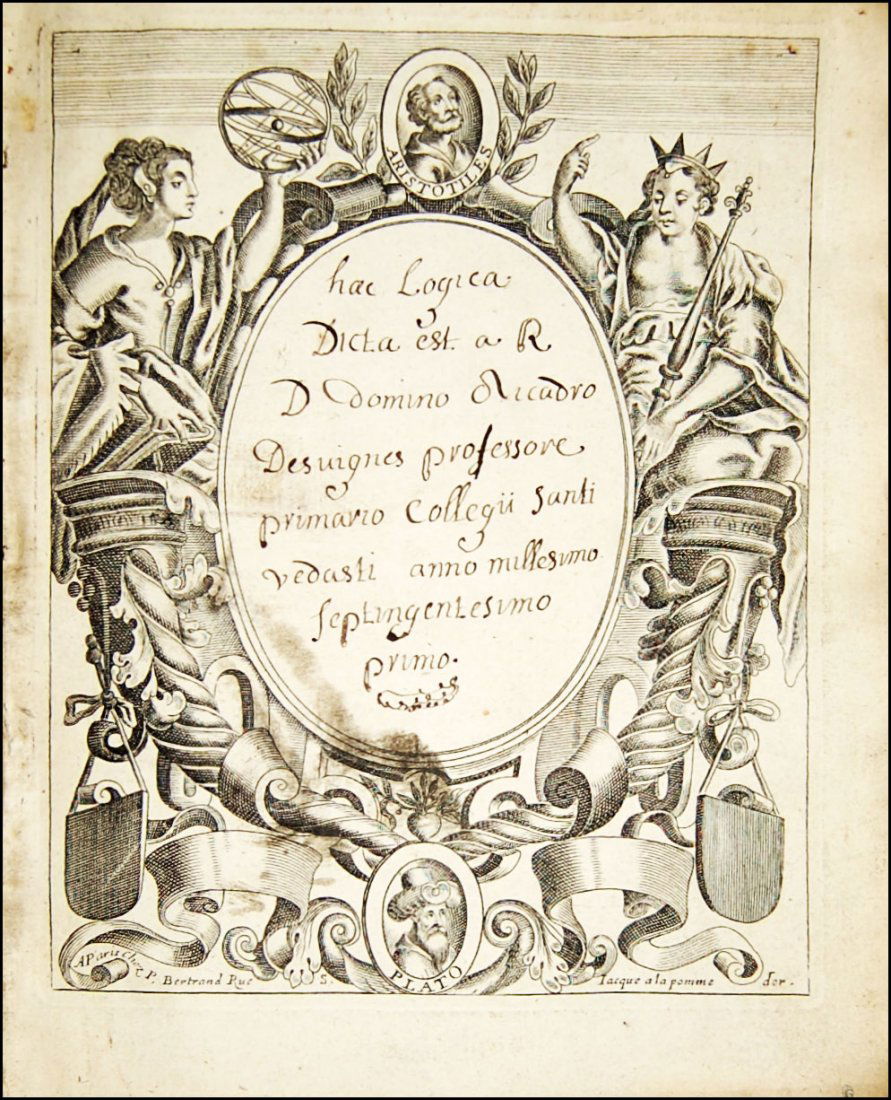 ARISTOTILES
hæc Logica
Dicta est a R
D domino Ricadro
Desvignes professore
primario Collegii Santi
vedasti anno millesimo
septingentesimo
primo.
PLATO
A Paris Chez P. Bertrand Rue S. Iacque a la pomme d'or.